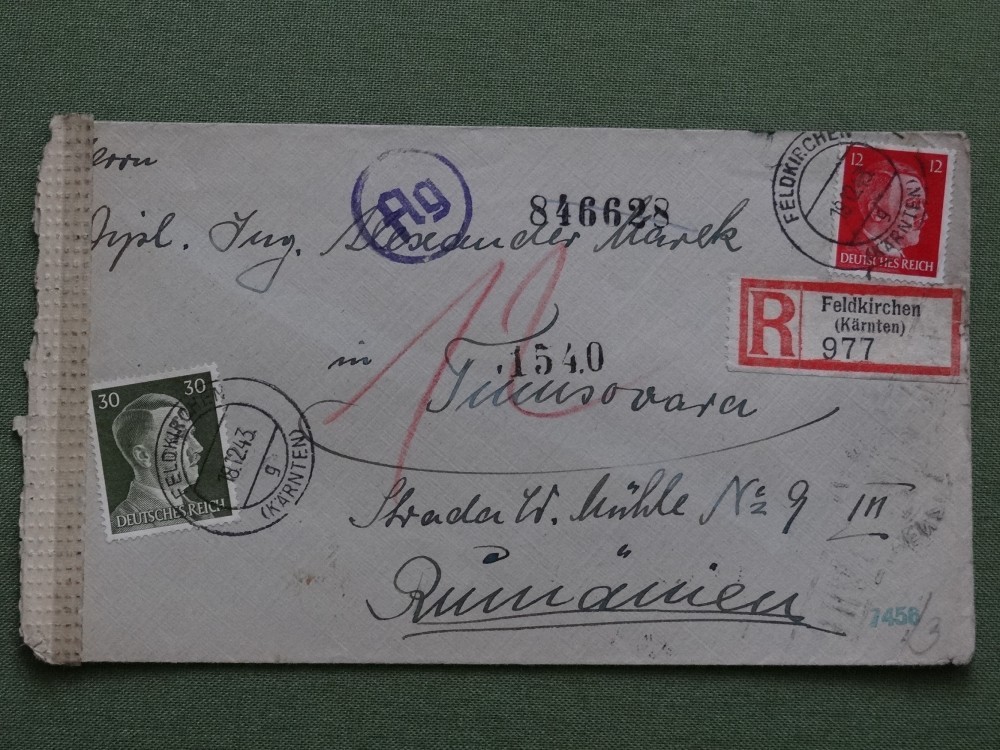 Herrn
Ag
846628
Dipl. Ing. Alexander Marek
12
in Timisoara
1540
Strada W. Mühle № 9 III
Rumänien
12 12
DEUTSCHES REICH
FELDKIRCHEN
(KÄRNTEN)
g
R Feldkirchen
(Kärnten)
977
30 30
DEUTSCHES REICH
FELDKIRCHEN
18.12.43
g
(KÄRNTEN)
7456